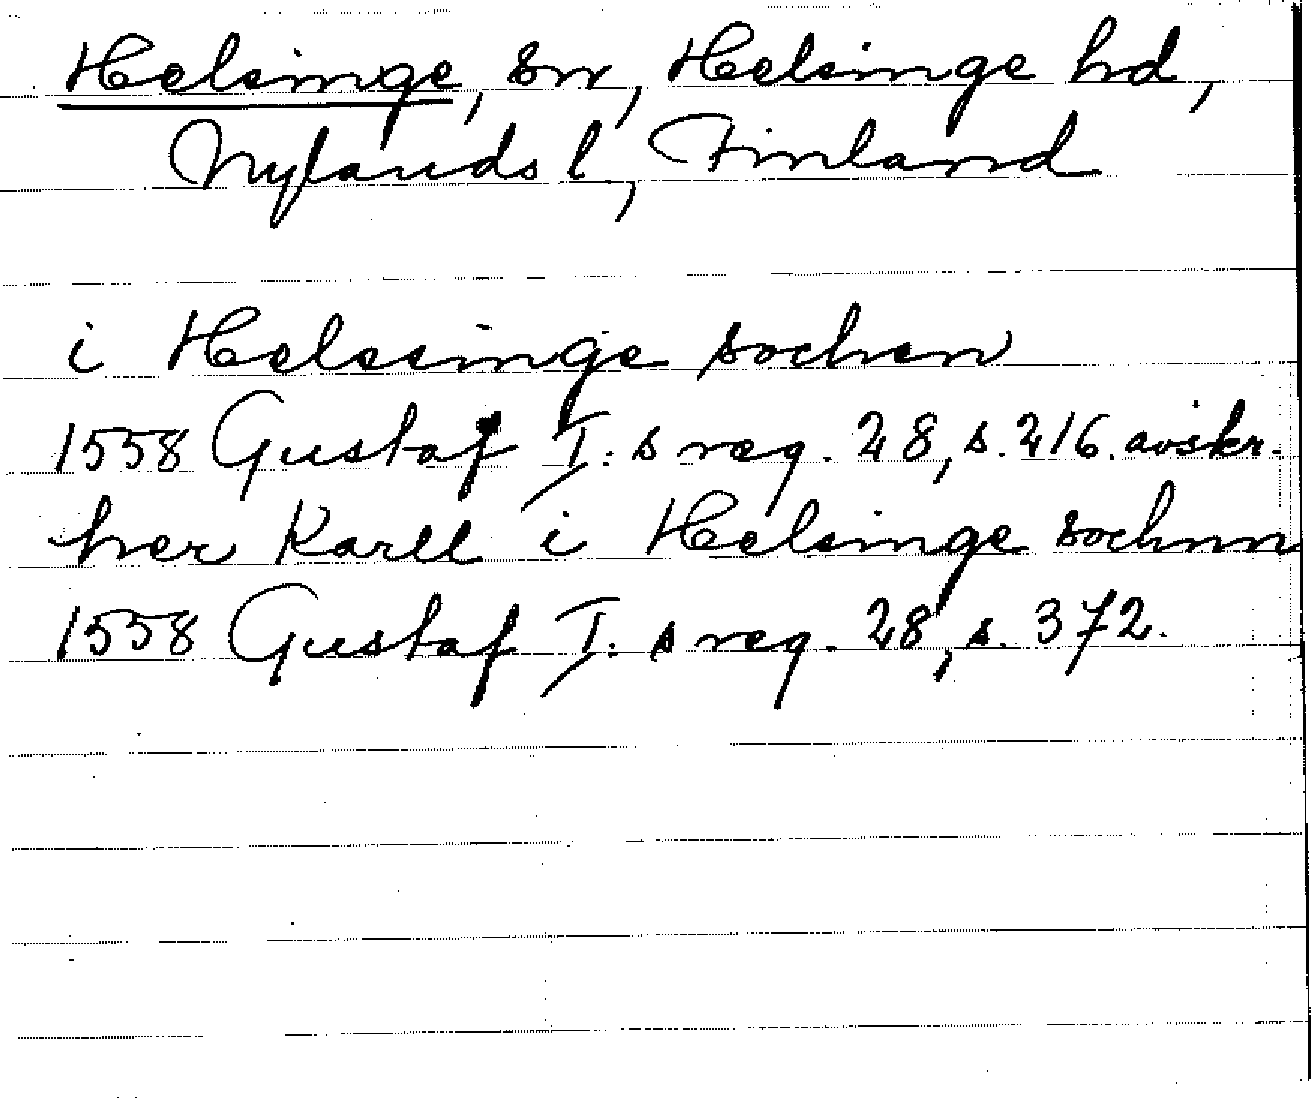 Helsinge, sn, Helsinge hd,
Nylands l, Finland
i Helssinge sochen
1558 Gustaf I:s reg. 28, s. 216. avskr.
her Karll i Helsinge sochnn
1558 Gustaf I:s reg. 28, s. 372.